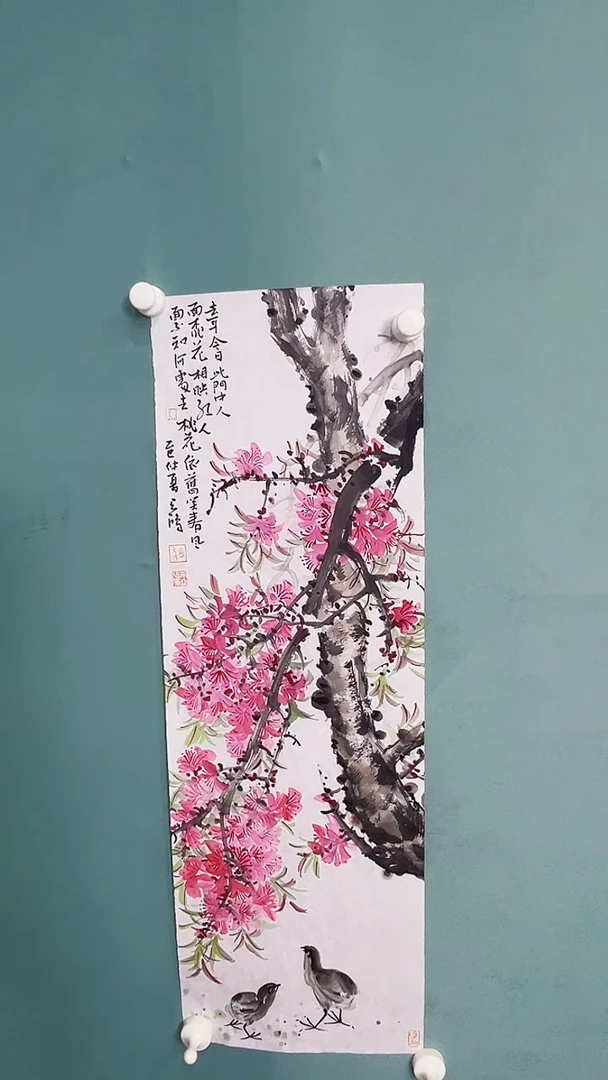 去年今日此門中人
面桃花相映红人
面不知何處去
桃花依舊笑春风
巳仲夏